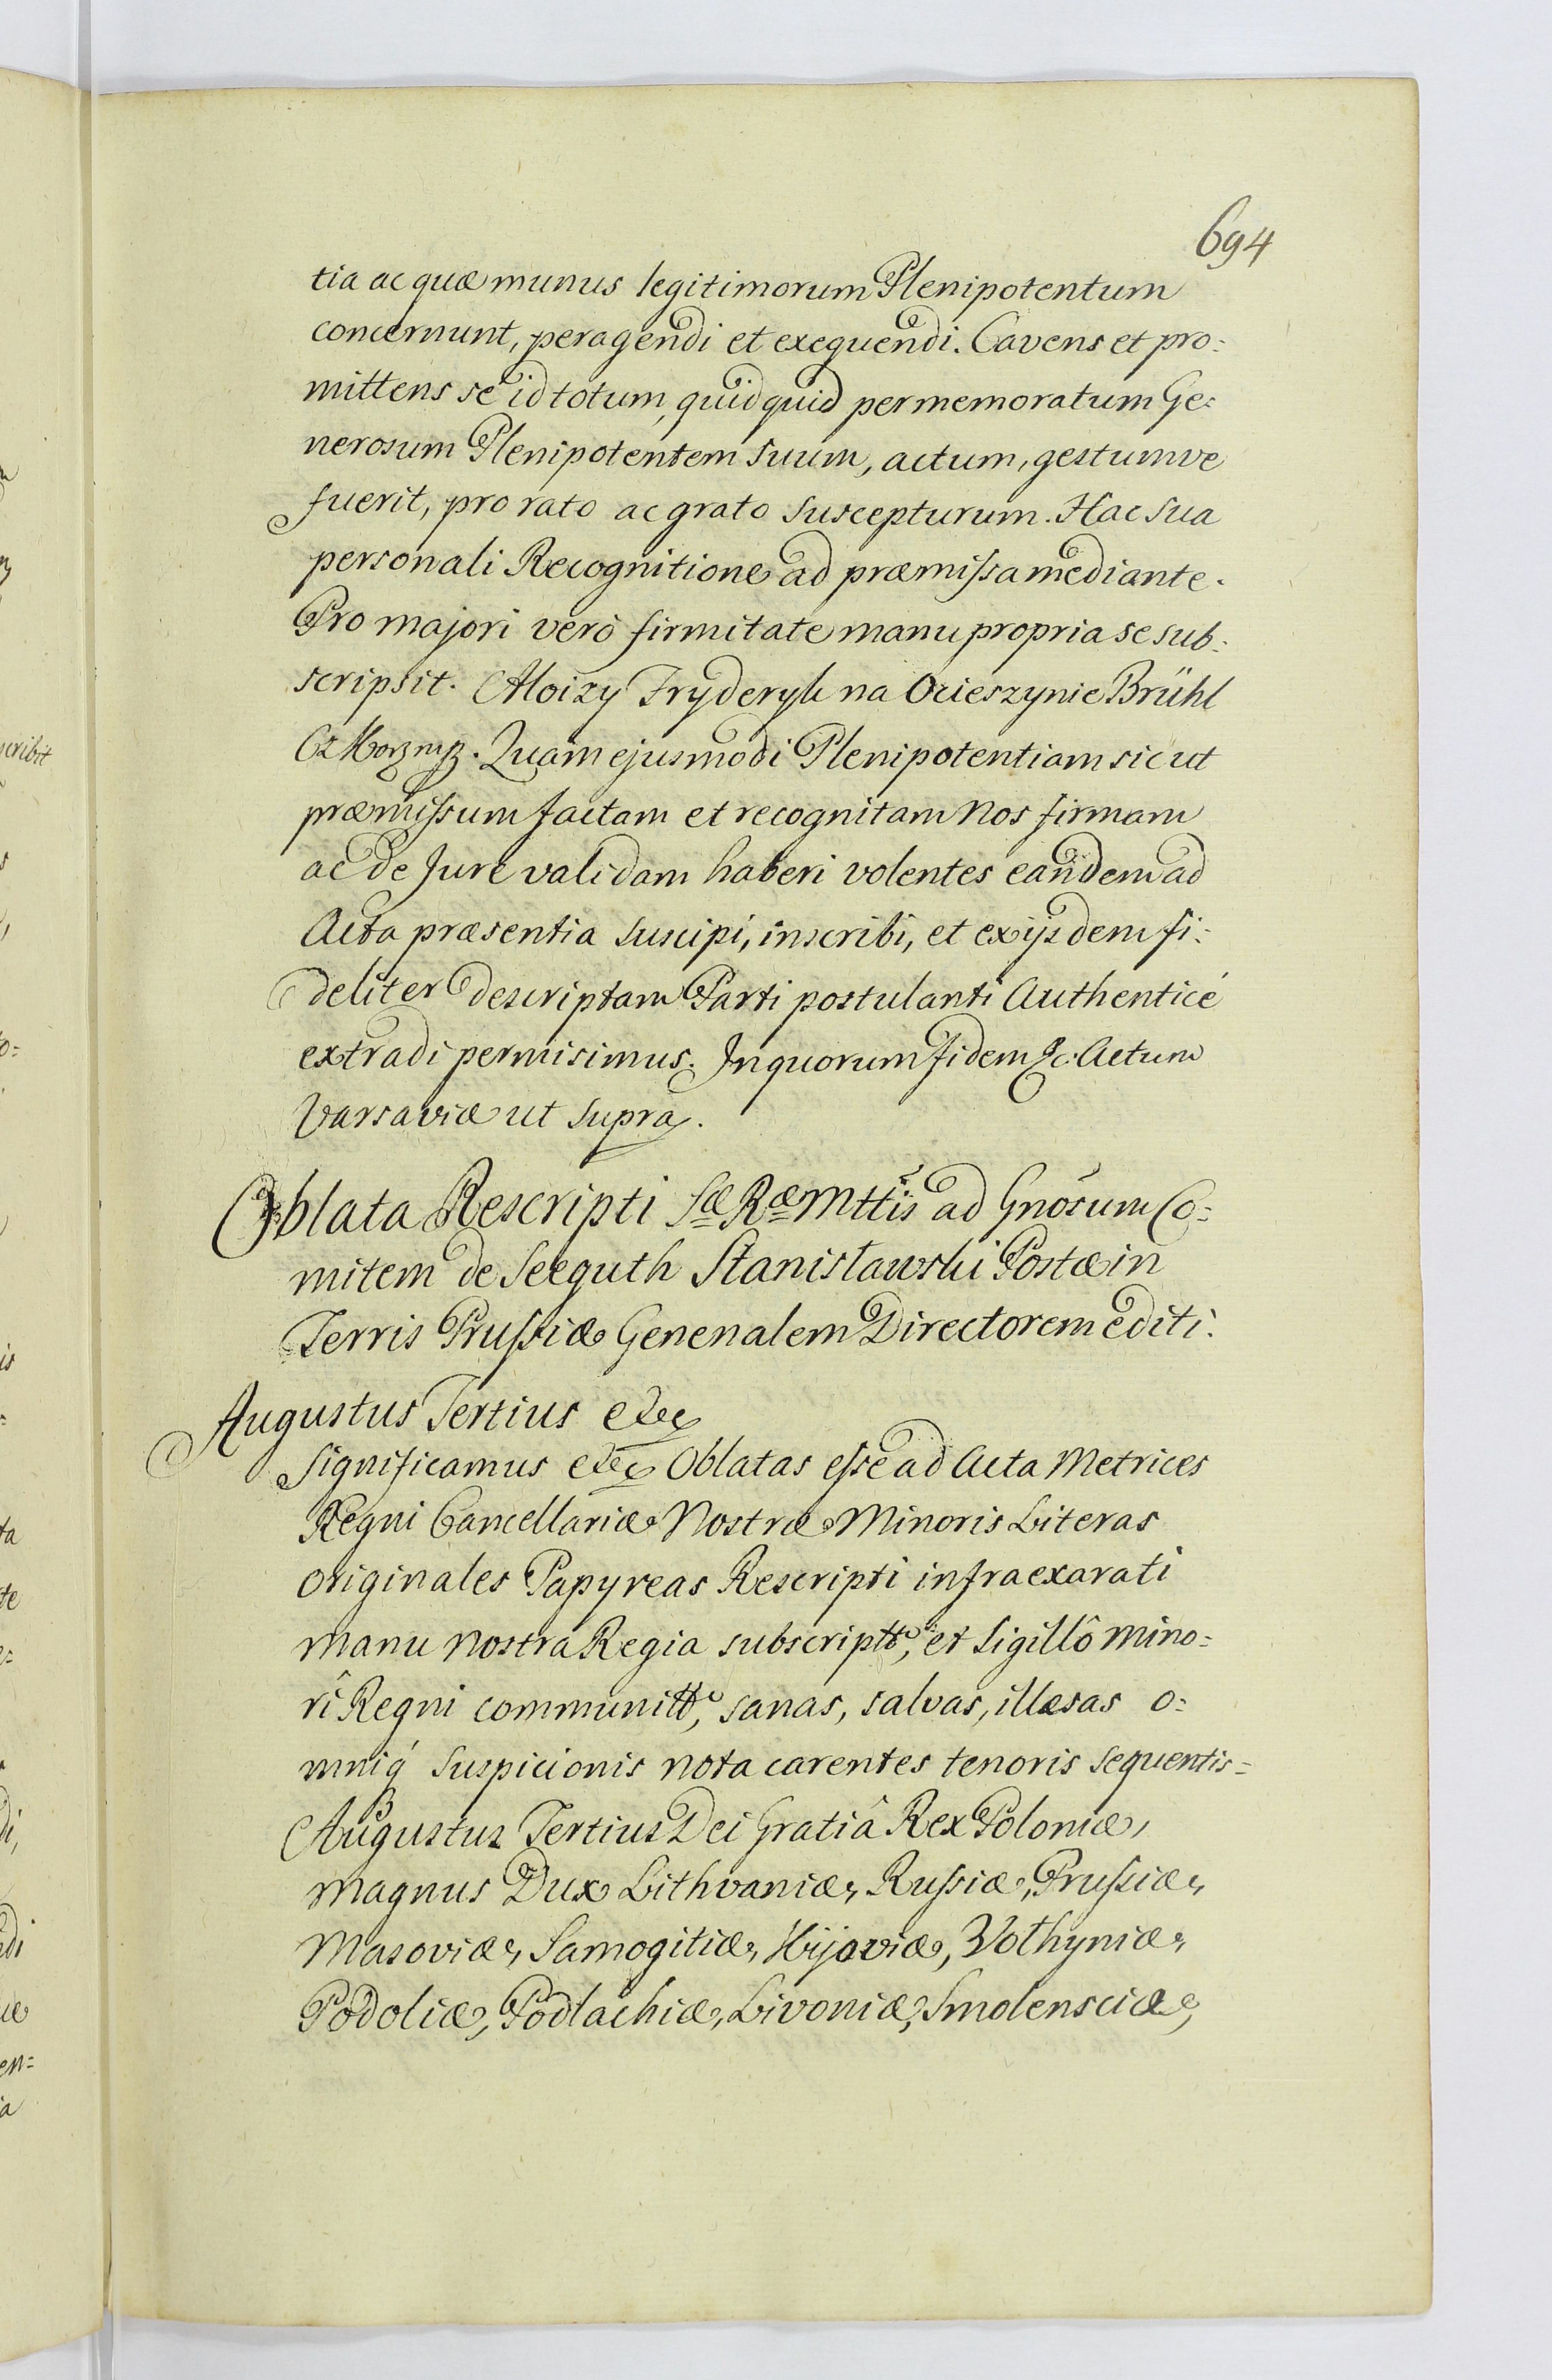 694
tia ac quæ munus legitimorum Plenipotentum
concernunt, peragendi et exequendi. Cavens et pro:
mittens se id totum, quidquid per memoratum Ge:
nerosum Plenipotentem Suum, actum, gestumve
fuerit, pro rato ac grato suscepturum. Hac sua
personali Recognitione ad præmissa mediante.
Pro majori verò firmitate manu propria se sub:
scripsit. Aloizy Fryderyk na Ocieszynie Brühl
Quam ejusmodi Plenipotentiam sicut
præmissum factam et recognitam Nos firmam
ac de Jure validam haberi volentes eandem ad
Acta præsentia suscipi, inscribi, et ex ijsdem fi:
deliter descriptam Parti postulanti Authenticé
extradi permisimus. In quorum fidem &c. Actum
Varsaviæ ut supra.
Oblata Rescripti Sæ Ræ Mttis ad Gnosum Co:
mitem de Seeguth Stanisławski Postæ in
Terris Prussiæ Genenalem Directorem editi.
Augustus Tertius etc
Significamus etc Oblatas esse ad Acta Metrices
Regni Cancellariæ Nostræ Minoris Literas
originales Papyreas Rescripti infra exarati
manu nostra Regia subscriptto, et Sigillô mino=
rî Regni communitto, sanas, salvas, illæsas o=
mniq́ suspicionis nota carentes tenoris sequentis=
Augustus Tertius Dei Gratiâ Rex Poloniæ,
Magnus Dux Lithvaniæ, Russiæ, Prussiæ,
Masoviæ, Samogitiæ, Kijoviæ, Volhyniæ,
Podoliæ, Podlachiæ, Livoniæ, Smolensciæ,
scribit